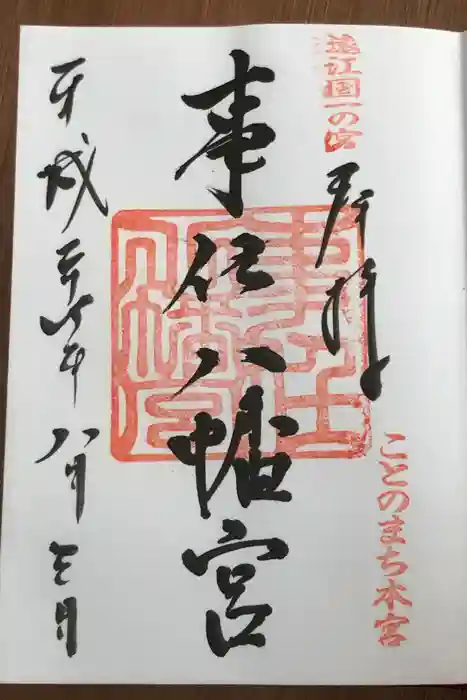 遠江国一の宮
奉拝
ことのまち本宮
事任八幡宮
平成二十八年八月三日